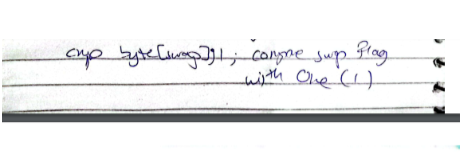 cmp byte[swap],1 ; compare swp flag
with One (1)